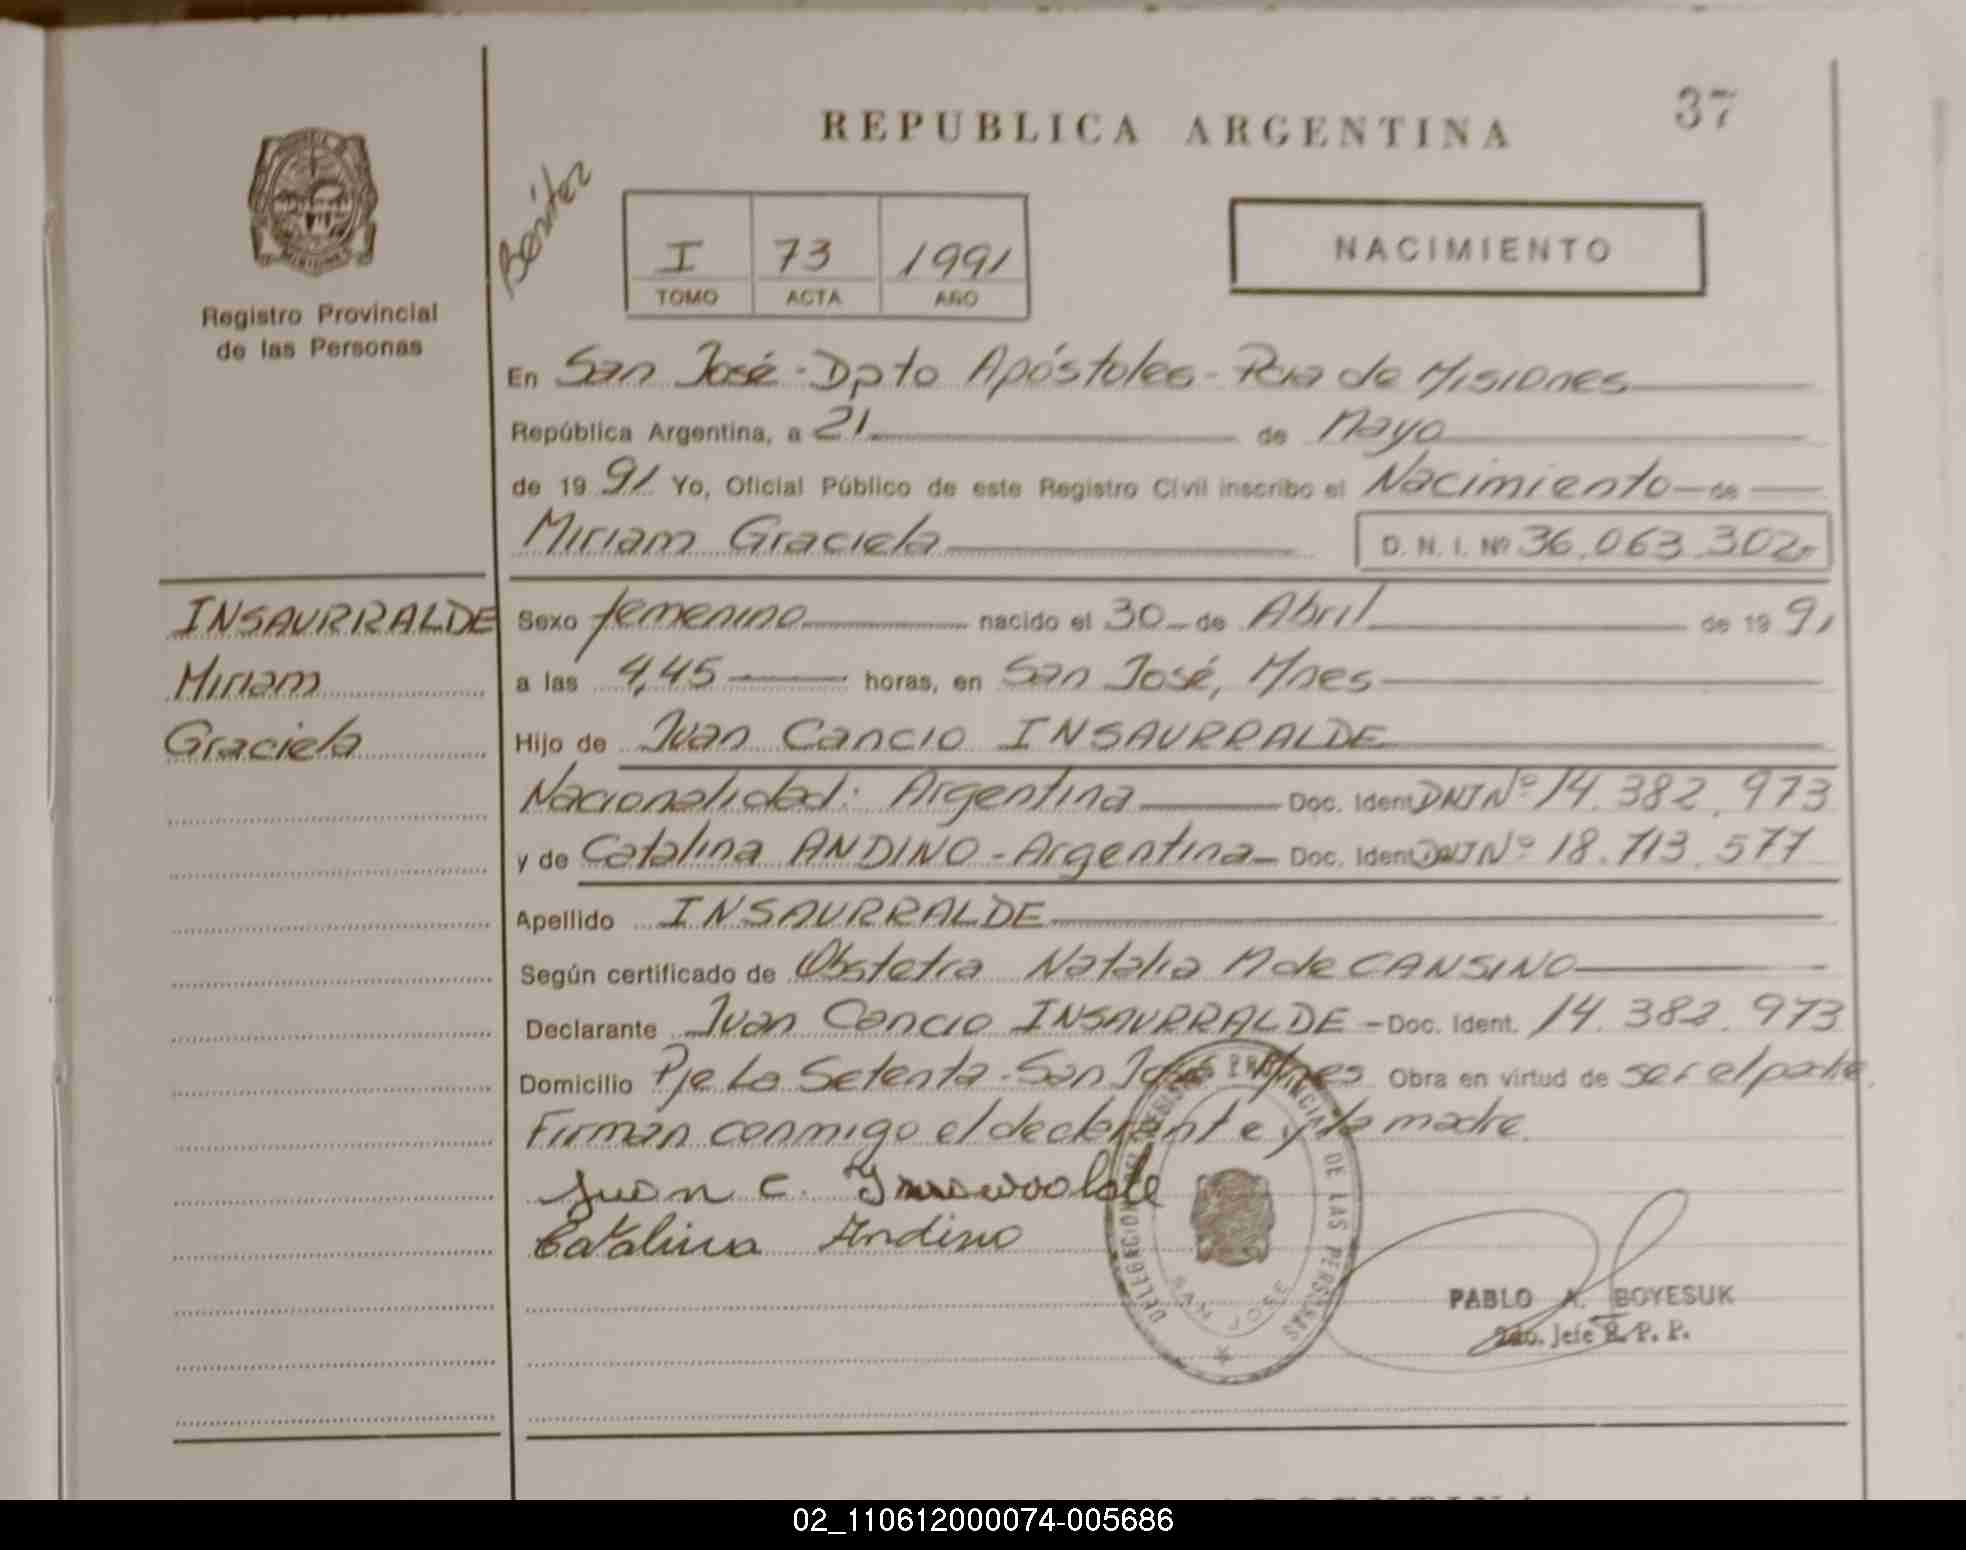 REPUBLICA ARGENTINA
37
Registro Provincial
de las Personas
Benítez
I 73 1991
TOMO ACTA AÑO
NACIMIENTO
En San José - Dpto Apóstoles - Pcia de Misiones
República Argentina, a 21 de Mayo
de 19 91 Yo, Oficial Público de este Registro Civil inscribo el Nacimiento de
Miriam Graciela D. N. I. Nº 36.063.302
INSAURRALDE
Miriam
Graciela
Sexo femenino nacido el 30 de Abril de 19 91
a las 4,45 horas, en San José, Mnes
Hijo de Juan Cancio INSAURRALDE
Nacionalidad: Argentina Doc. Ident DNI Nº 14.382.973
y de Catalina ANDINO - Argentina - Doc. Ident DNI Nº 18.713.577
Apellido INSAURRALDE
Según certificado de Obstetra Natalia M de CANSINO
Declarante Juan Cancio INSAURRALDE - Doc. Ident. 14.382.973
Domicilio Pje La Setenta - San José Mnes Obra en virtud de ser el padre.
Firman conmigo el declarante y la madre.
Juan C. Insaurralde
Catalina Andino
DELEGACION DEL REGISTRO PROVINCIAL DE LAS PERSONAS
SAN JOSE
PABLO A. BOYESUK
2do. Jefe R. P. P.
02_110612000074-005686